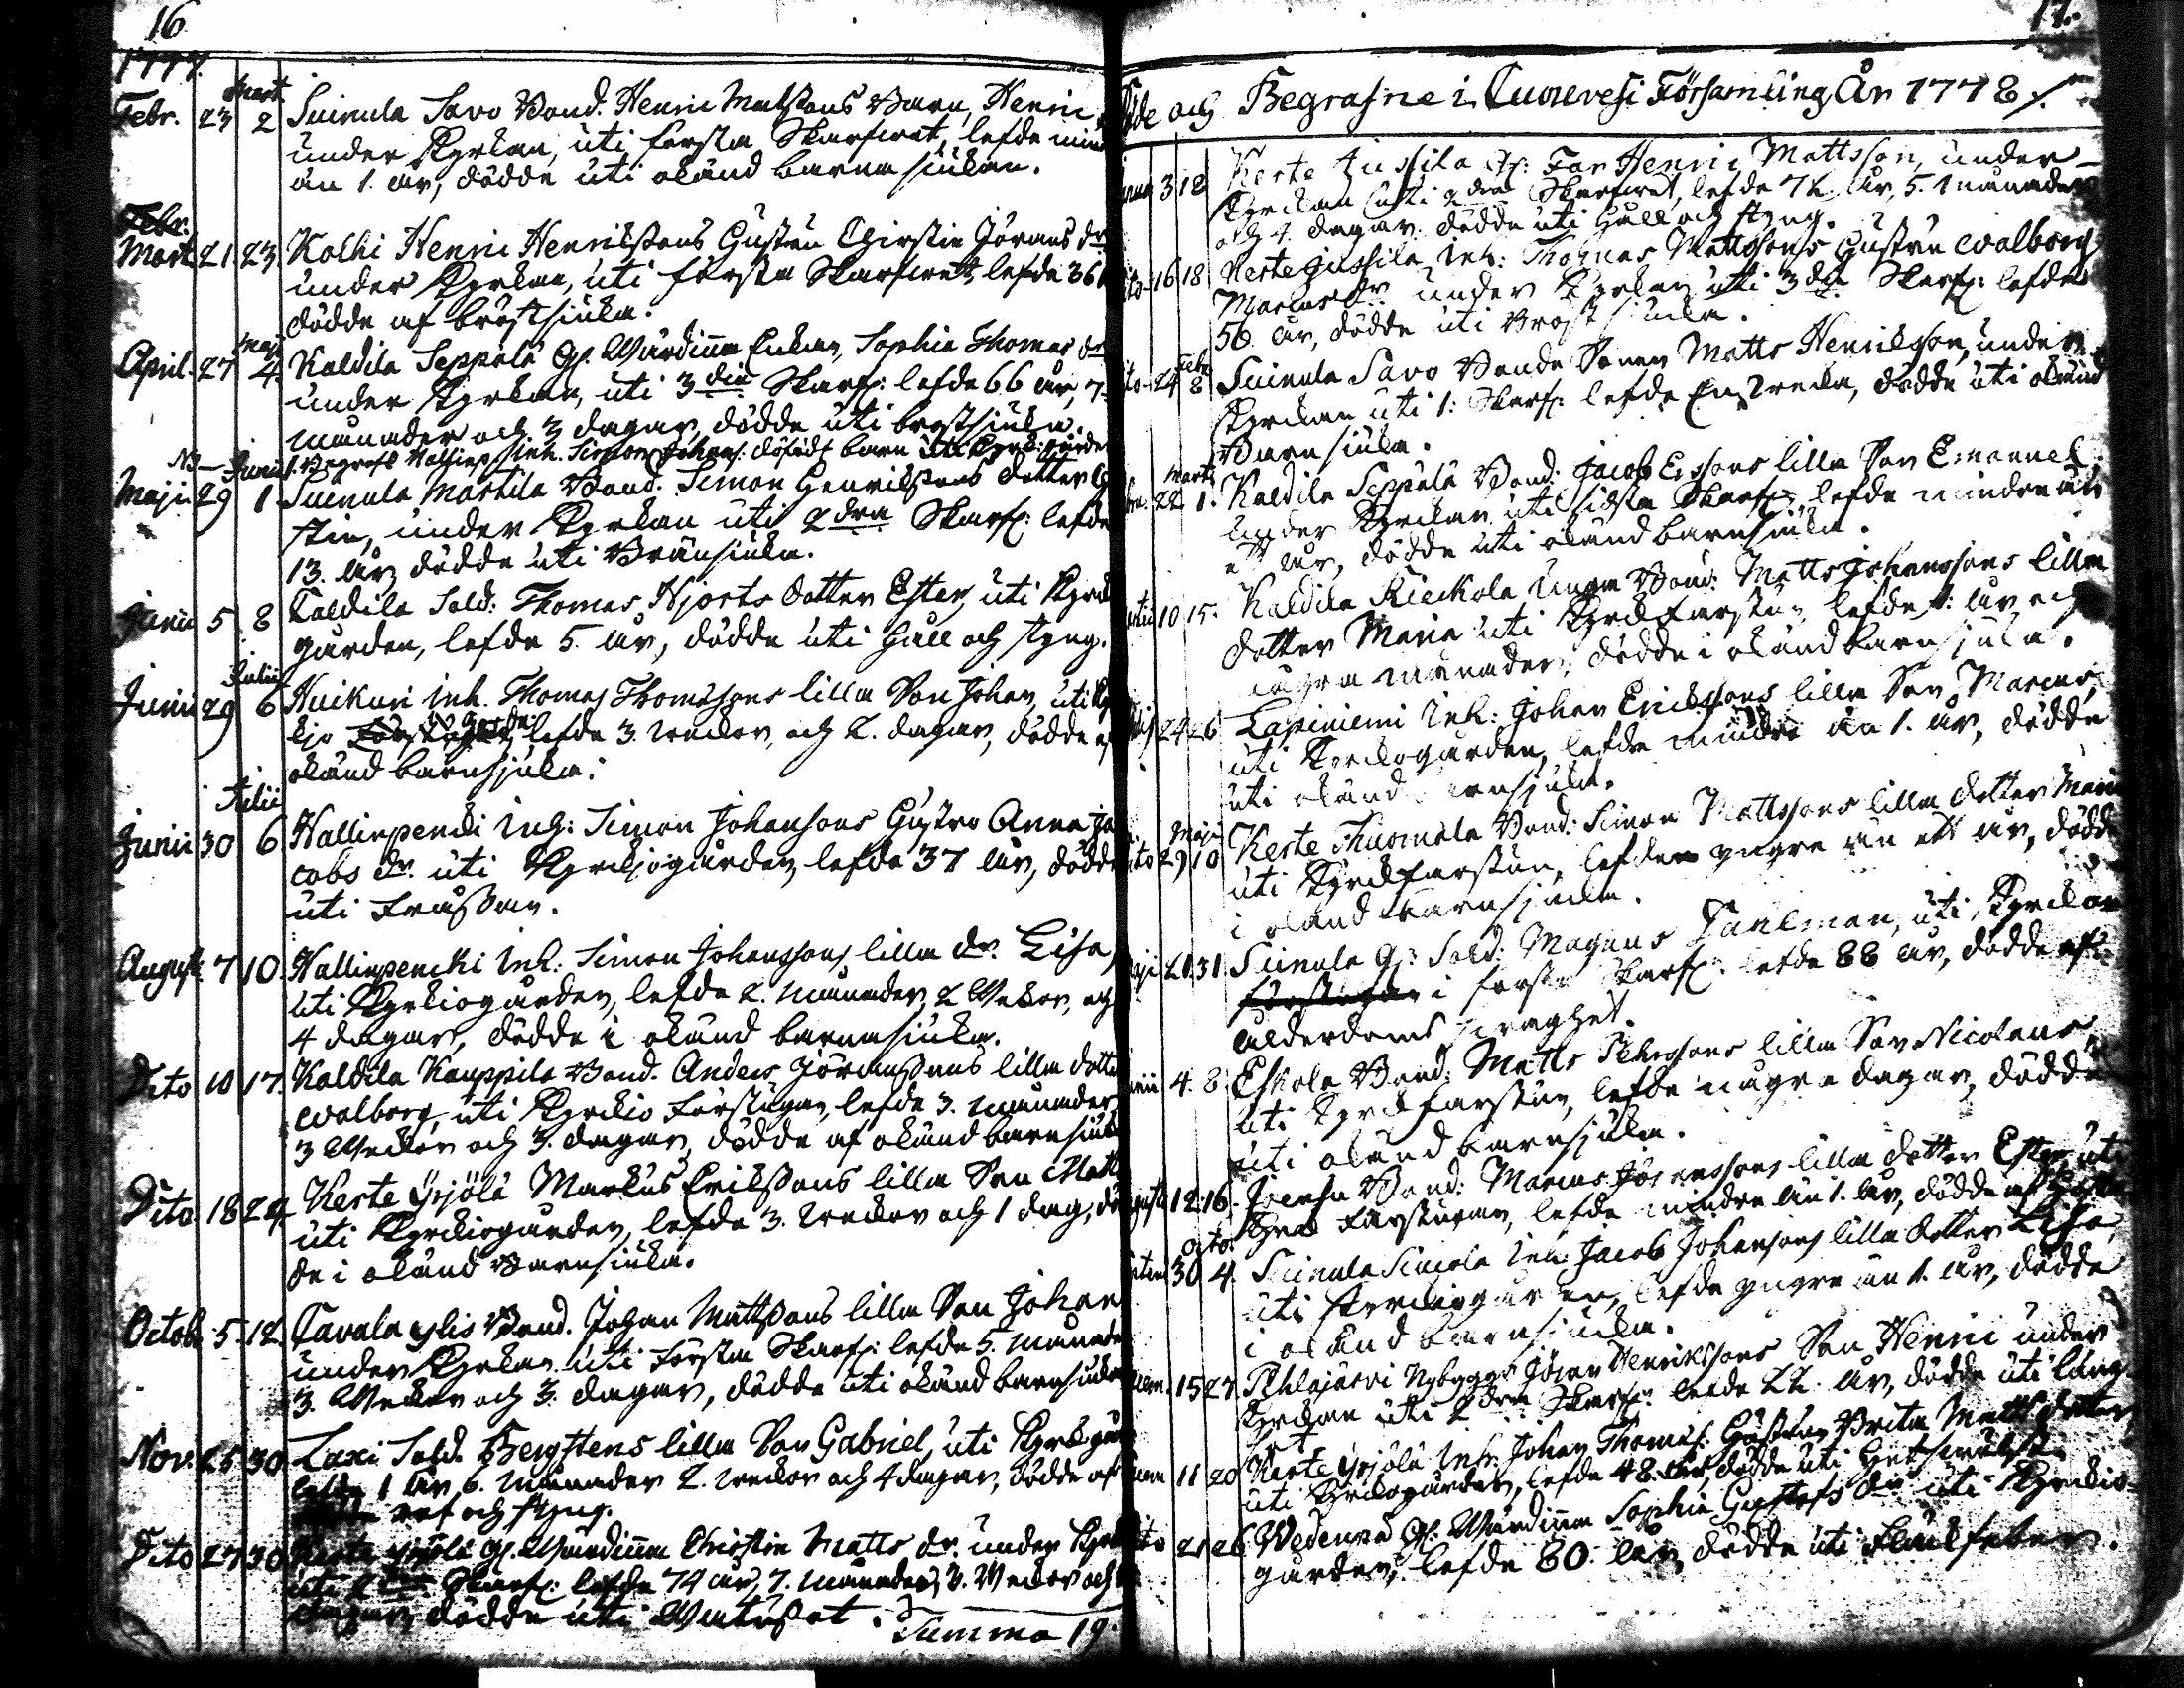 16
1777.
Febr. 23 Mart. 2 Suinula Savo Bond. Henric Mattsons Barn, Henric
under Kyrkan, uti första Skarfwet, lefde mind
än 1. år, död̄e uti okänd barna siukan.
Febr.
Mart. 21 23 Kolhi Henric Henrikssons Hustru Christin Jörans dr
under Kyrkan, uti första Skarfwet, lefde 36
dödde af bröstsiuka.
April. 27 Maj 4. Kaldila Seppälä gl. Wärdinna Enkan, Sophia Thomas dr
under Kyrkan, uti 3die Skarf: lefde 66 år, 7.
månader och 3 dagar, dödde uti bröstsiuka.
NB. Begrofs Hallinp. Inh. Simon Johans: dödfödt barn uti Kyrk:gården
Maji 29 Junii 1 Suinula Marttila Bond. Simon Henrikssons dotter
stin, under Kyrkan uti 2dra Skarf: lefde
13. år, dödde uti Bränsiuka.
Junii 5 8 Kaldila Sold: Thomas Hjorts dotter Ester, uti Kyrk
gården, lefde 5. år, dödde uti Håll och styng.
Junii 29 Julii 6 Huikuri Inh. Thomas Thomassons lilla Son Johan, uti Ky
kio lefde 3. weckor, och 2. dagar, dödde af
okänd barnsjuka.
Junii 30 Julii 6 Hallinpencki Inh: Simon Johansons Hustru Anna Ja
cobs dr. uti Kyrkjogården, lefde 37 år, dödde
uti Frässan.
August. 7 10. Hallinpencki Inh: Simon Johanssons lilla dr. Lisa,
uti Kyrkiogården, lefde 2. månader, 2 Wekor, och
4 dagar, dödde i okänd barnasiuka.
Dito 10 17. Kaldila Kauppila Bond. Anders Jöranssons lilla dotte
Walborg, uti Kyrckio Förstugan, lefde 3. månader
3 Weckor och 3. dagar, dödde af okänd barnsiuka
Dito 18 24. Kerte Yrjölä Markus Erikssons lilla Son Matt
uti Kyrckiogården, lefde 3. weckor och 1 dag, död
de i okänd Barnsiuka.
Octob. 5. 12. Tavala ylis Bond. Johan Mattssons lilla Son Johan
under Kyrkan uti Första Skarf: lefde 5. månade
3. Weckor och 3. dagar, dödde uti okänd barnsiuka
Nov. 25 30 Laxi Sold. Bergstens lilla Son Gabriel, uti Kyrkgår
lefde 1 år 6. månader 2. weckor och 4 dagar, dödde af
ref och styng.
Dito 27 30 Kerte Yrjölä gl. Wärdinna Christin Matts dr. under Kyrk
uti 2dra Skarf: lefde 74 år, 7. månader, 3. Weckor och
dagar, dödde uti Wattusot.
Summa 19.
17.
Döde och Begrafne i Ourevesi Församling År 1778.
3 18 Kerte Jussila Gl: Far Henric Mattsson, under
Kyrckan uti 2dra Skarfwet, lefde 72 år, 5. månader
och 4. dagar. dödde uti Håll och styng.
16 18 Kerte Jussila Inh: Thomas Mattssons Hustru Walborg
Marcus dr under Kyrkan uti 3die Skarf: lefde
56. år, dödde uti Bröstsiuka.
24 Febr 8 Suinula Savo Bonde Sonen Matts Henriksson, under
Kyrckan uti 1: Skarf: lefde En Wecka, dödde uti okänd
Barnsiuka.
22 Martii 1. Kaldila Seppälä Bond: Jacob Erssons lilla Son Emanuel
under Kyrckan uti sidsta Skarf: lefde mindre än
ett år, dödde uti okänd barnsiuka.
10 15. Kaldila Rieckola Unga Bond: Matts Johanssons lilla
dotter Maria uti Kyrckfarstun, lefde 1: år och
några månader, dödde i okänd barnsjuka.
24 26 Lapiniemi Inh: Johan Erikssons lilla Son Marcus,
uti Kyrckogården, lefde mindre än 1. år, dödde
uti okänd barnsjuka.
29 Maji 10 Kerte Thuomala Bond: Simon Mattssons lilla dotter Maria
uti Kyrckfarstun, lefde yngre än ett år, dödde
i okänd barnsjuka.
21 31 Suinula Gl: Sold: Magnus Tahlman, uti Kyrckan
i första Skarf: lefde 88 år, dödde af
ålderdoms swaghet.
4. 8 Eskola Bond: Matts Pehrssons lilla Son Nicolaus,
uti Kyrckfarstun, lefde några dagar, dödde
uti okänd barnsjuka.
12. 16. Bond: Marcus Jöranssons lilla dotter Ester uti
Kyrck Farstugan, lefde mindre än 1. år, dödde af
30 Octo. 4. Suinula Inh: Jacob Johansons lilla dotter Lisa,
uti Kyrckiogården, lefde yngre än 1. år, dödde
i okänd barnsiuka.
15 27 Pihlajärvi Nybygg: Johan Henrikssons Son Henric under
Kyrckan uti 2dra Skarf: lefde 22. år, dödde uti lung
sot.
11 20 Kerte Yrjölä Inh: Johan Thomæs: Hustru Brita Matts dotter,
uti Kyrckogården, lefde 48. år, dödde uti
21 26 Wedenpä Gl: Wärdinna Sophia Gustafs dr uti Kyrckio
gården, lefde 80. år, dödde uti Fläckfeber.